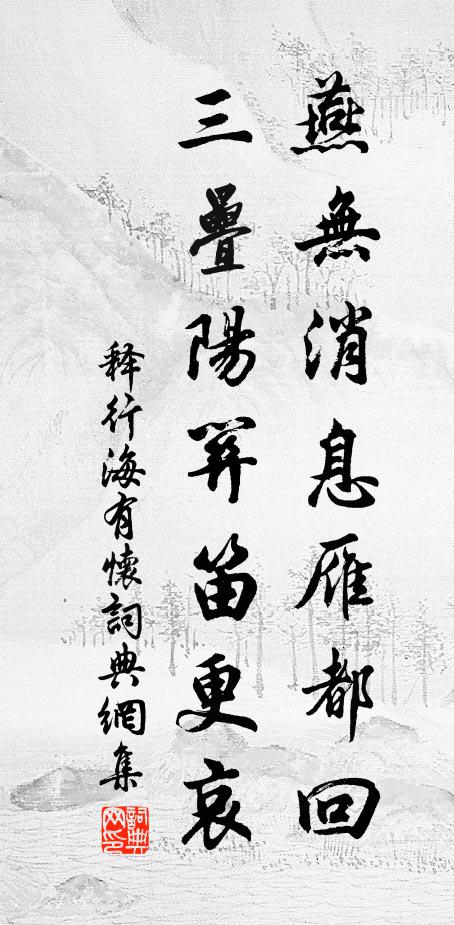 燕無消息雁都回
三疊陽関笛更哀
释行海有懷詞典網集
詞典
网印